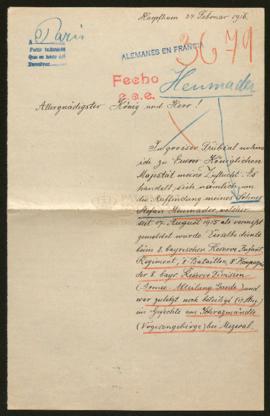 Höpfham 24 Februar 1916.
Paris
ALEMANES EN FRANCIA
3679
Fecho
c.a.e.
Heumader
Allergnädigster König und Herr!
In grosser Trübsal nehme
ich zu Eurer Königlichen
Majestät meine Zuflucht. Es
handelt sich nämlich um
die Auffindung meines Sohnes
Stefan Heumader, welcher
seit 17. August 1915 als vermisst
gemeldet wurde. Derselbe diente
beim 8. bayrischen Reserve Infant.
Regiment, 2. Bataillon, 8. Kompagnie
der 8. bayr. Reserve Division
(Armee Abteilung Gaede) und
war zuletzt noch beteiligt
im Gefechte am Schratzmännle
(Vogesengebirge) bei Mezeral.